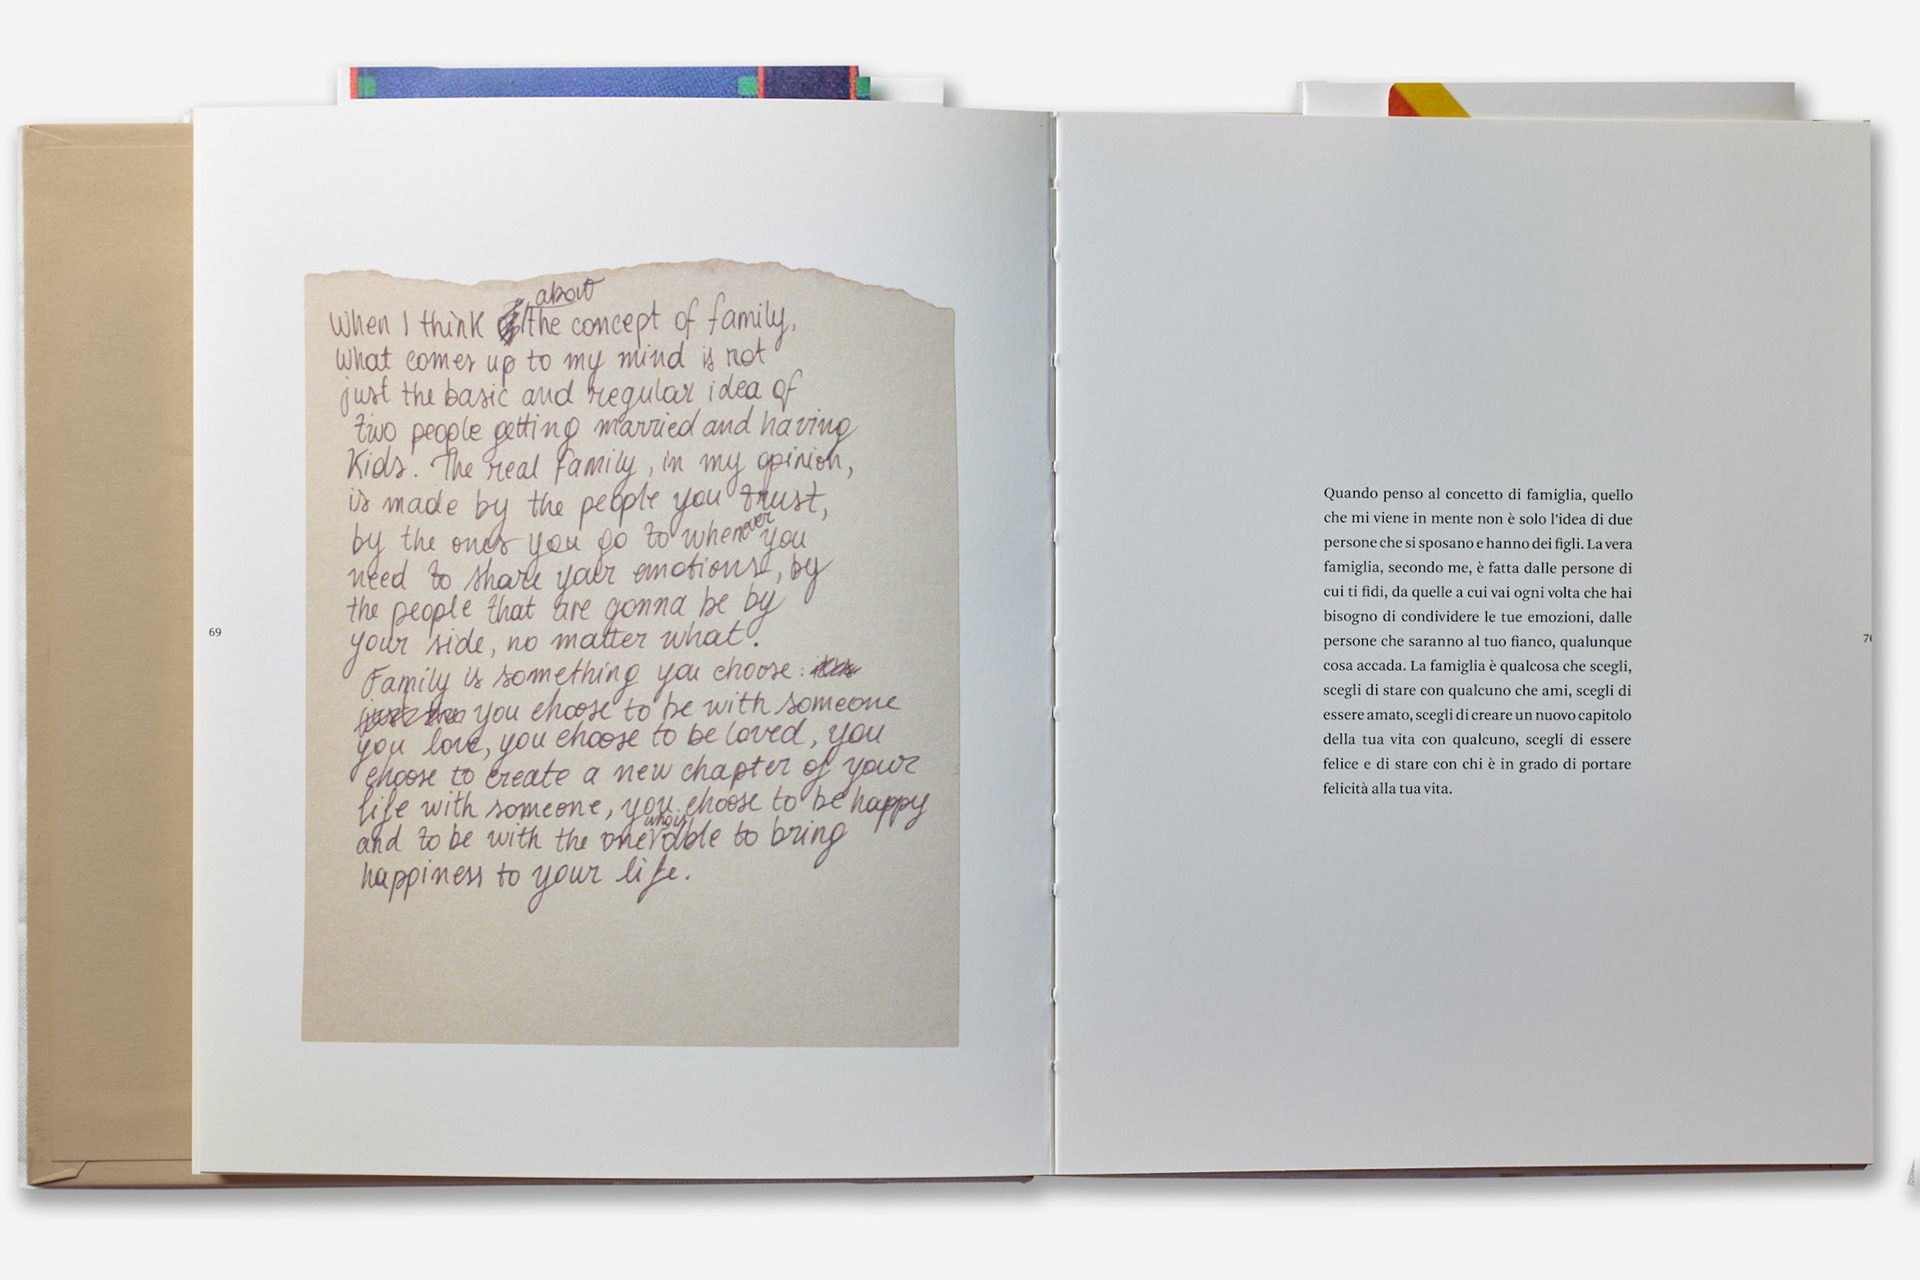 about
When I think the concept of family,
what comes up to my mind is not
just the basic and regular idea of
two people getting married and having
kids. The real family, in my opinion,
is made by the people you trust,
by the ones you go to whenever you
need to share your emotions, by
the people that are gonna be by
your side, no matter what.
Family is something you choose:
you choose to be with someone
you love, you choose to be loved, you
choose to create a new chapter of your
life with someone, you choose to be happy
who is
and to be with the one able to bring
happiness to your life.
69
Quando penso al concetto di famiglia, quello
che mi viene in mente non è solo l'idea di due
persone che si sposano e hanno dei figli. La vera
famiglia, secondo me, è fatta dalle persone di
cui ti fidi, da quelle a cui vai ogni volta che hai
bisogno di condividere le tue emozioni, dalle
persone che saranno al tuo fianco, qualunque
cosa accada. La famiglia è qualcosa che scegli,
scegli di stare con qualcuno che ami, scegli di
essere amato, scegli di creare un nuovo capitolo
della tua vita con qualcuno, scegli di essere
felice e di stare con chi è in grado di portare
felicità alla tua vita.
70